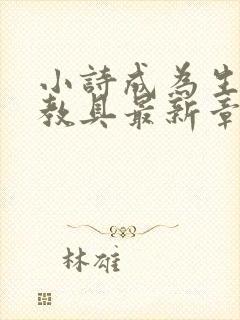 小詩成為生
教具最新章
林雄